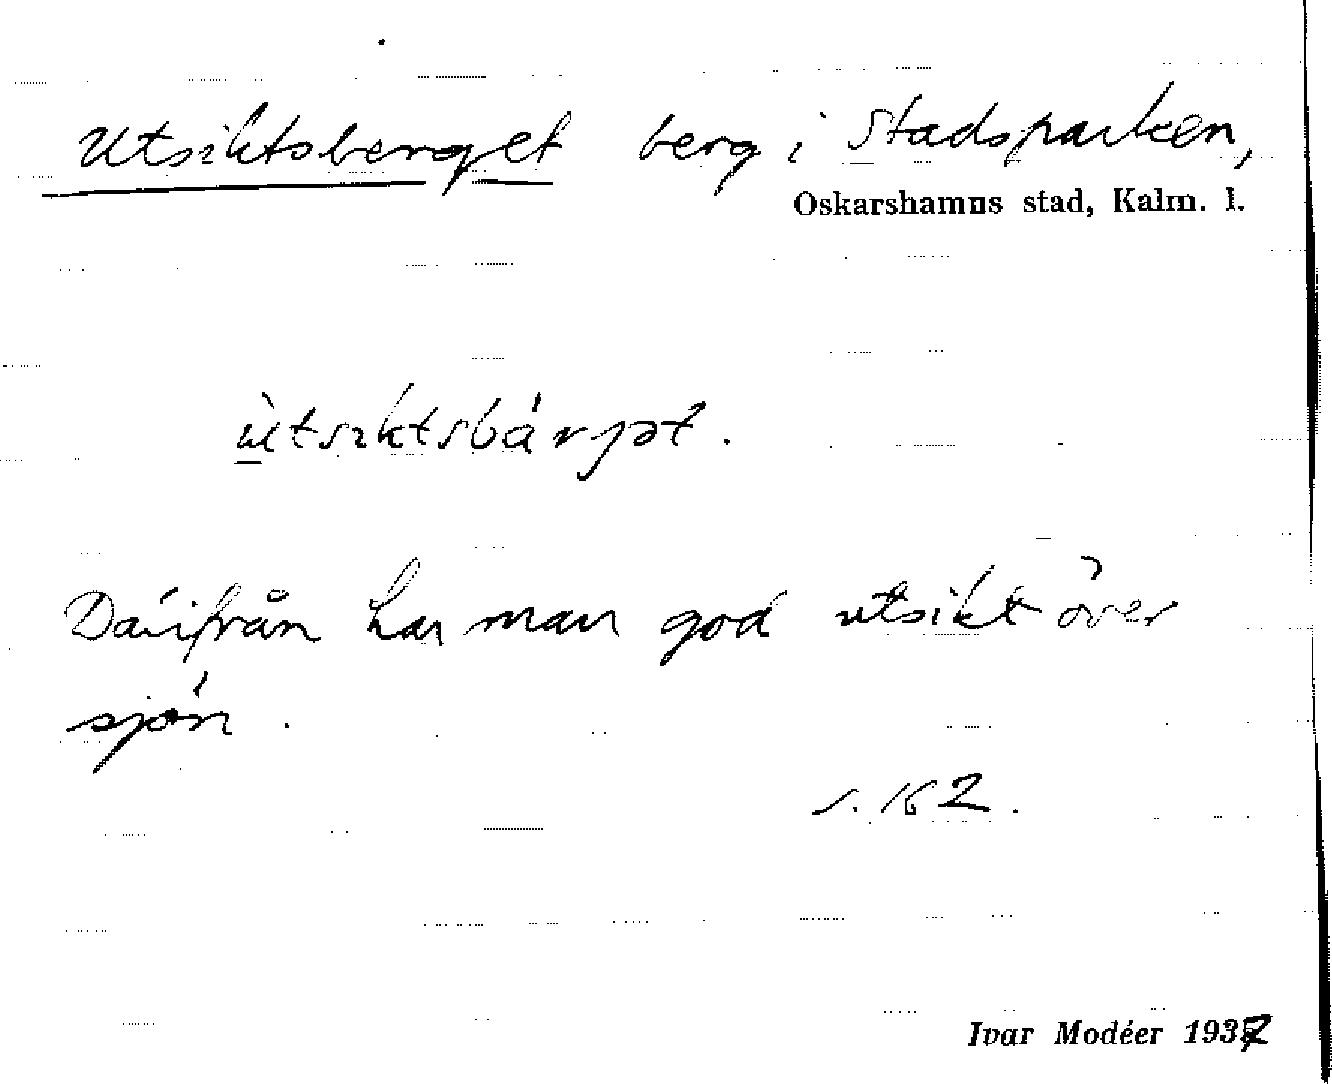 Utsiktsberget berg i Stadsparken,
Oskarshamns stad, Kalm. l.
ùtsɪktsbárjət.
Därifrån har man god utsikt över
sjön.
s. 162.
Ivar Modéer 1937